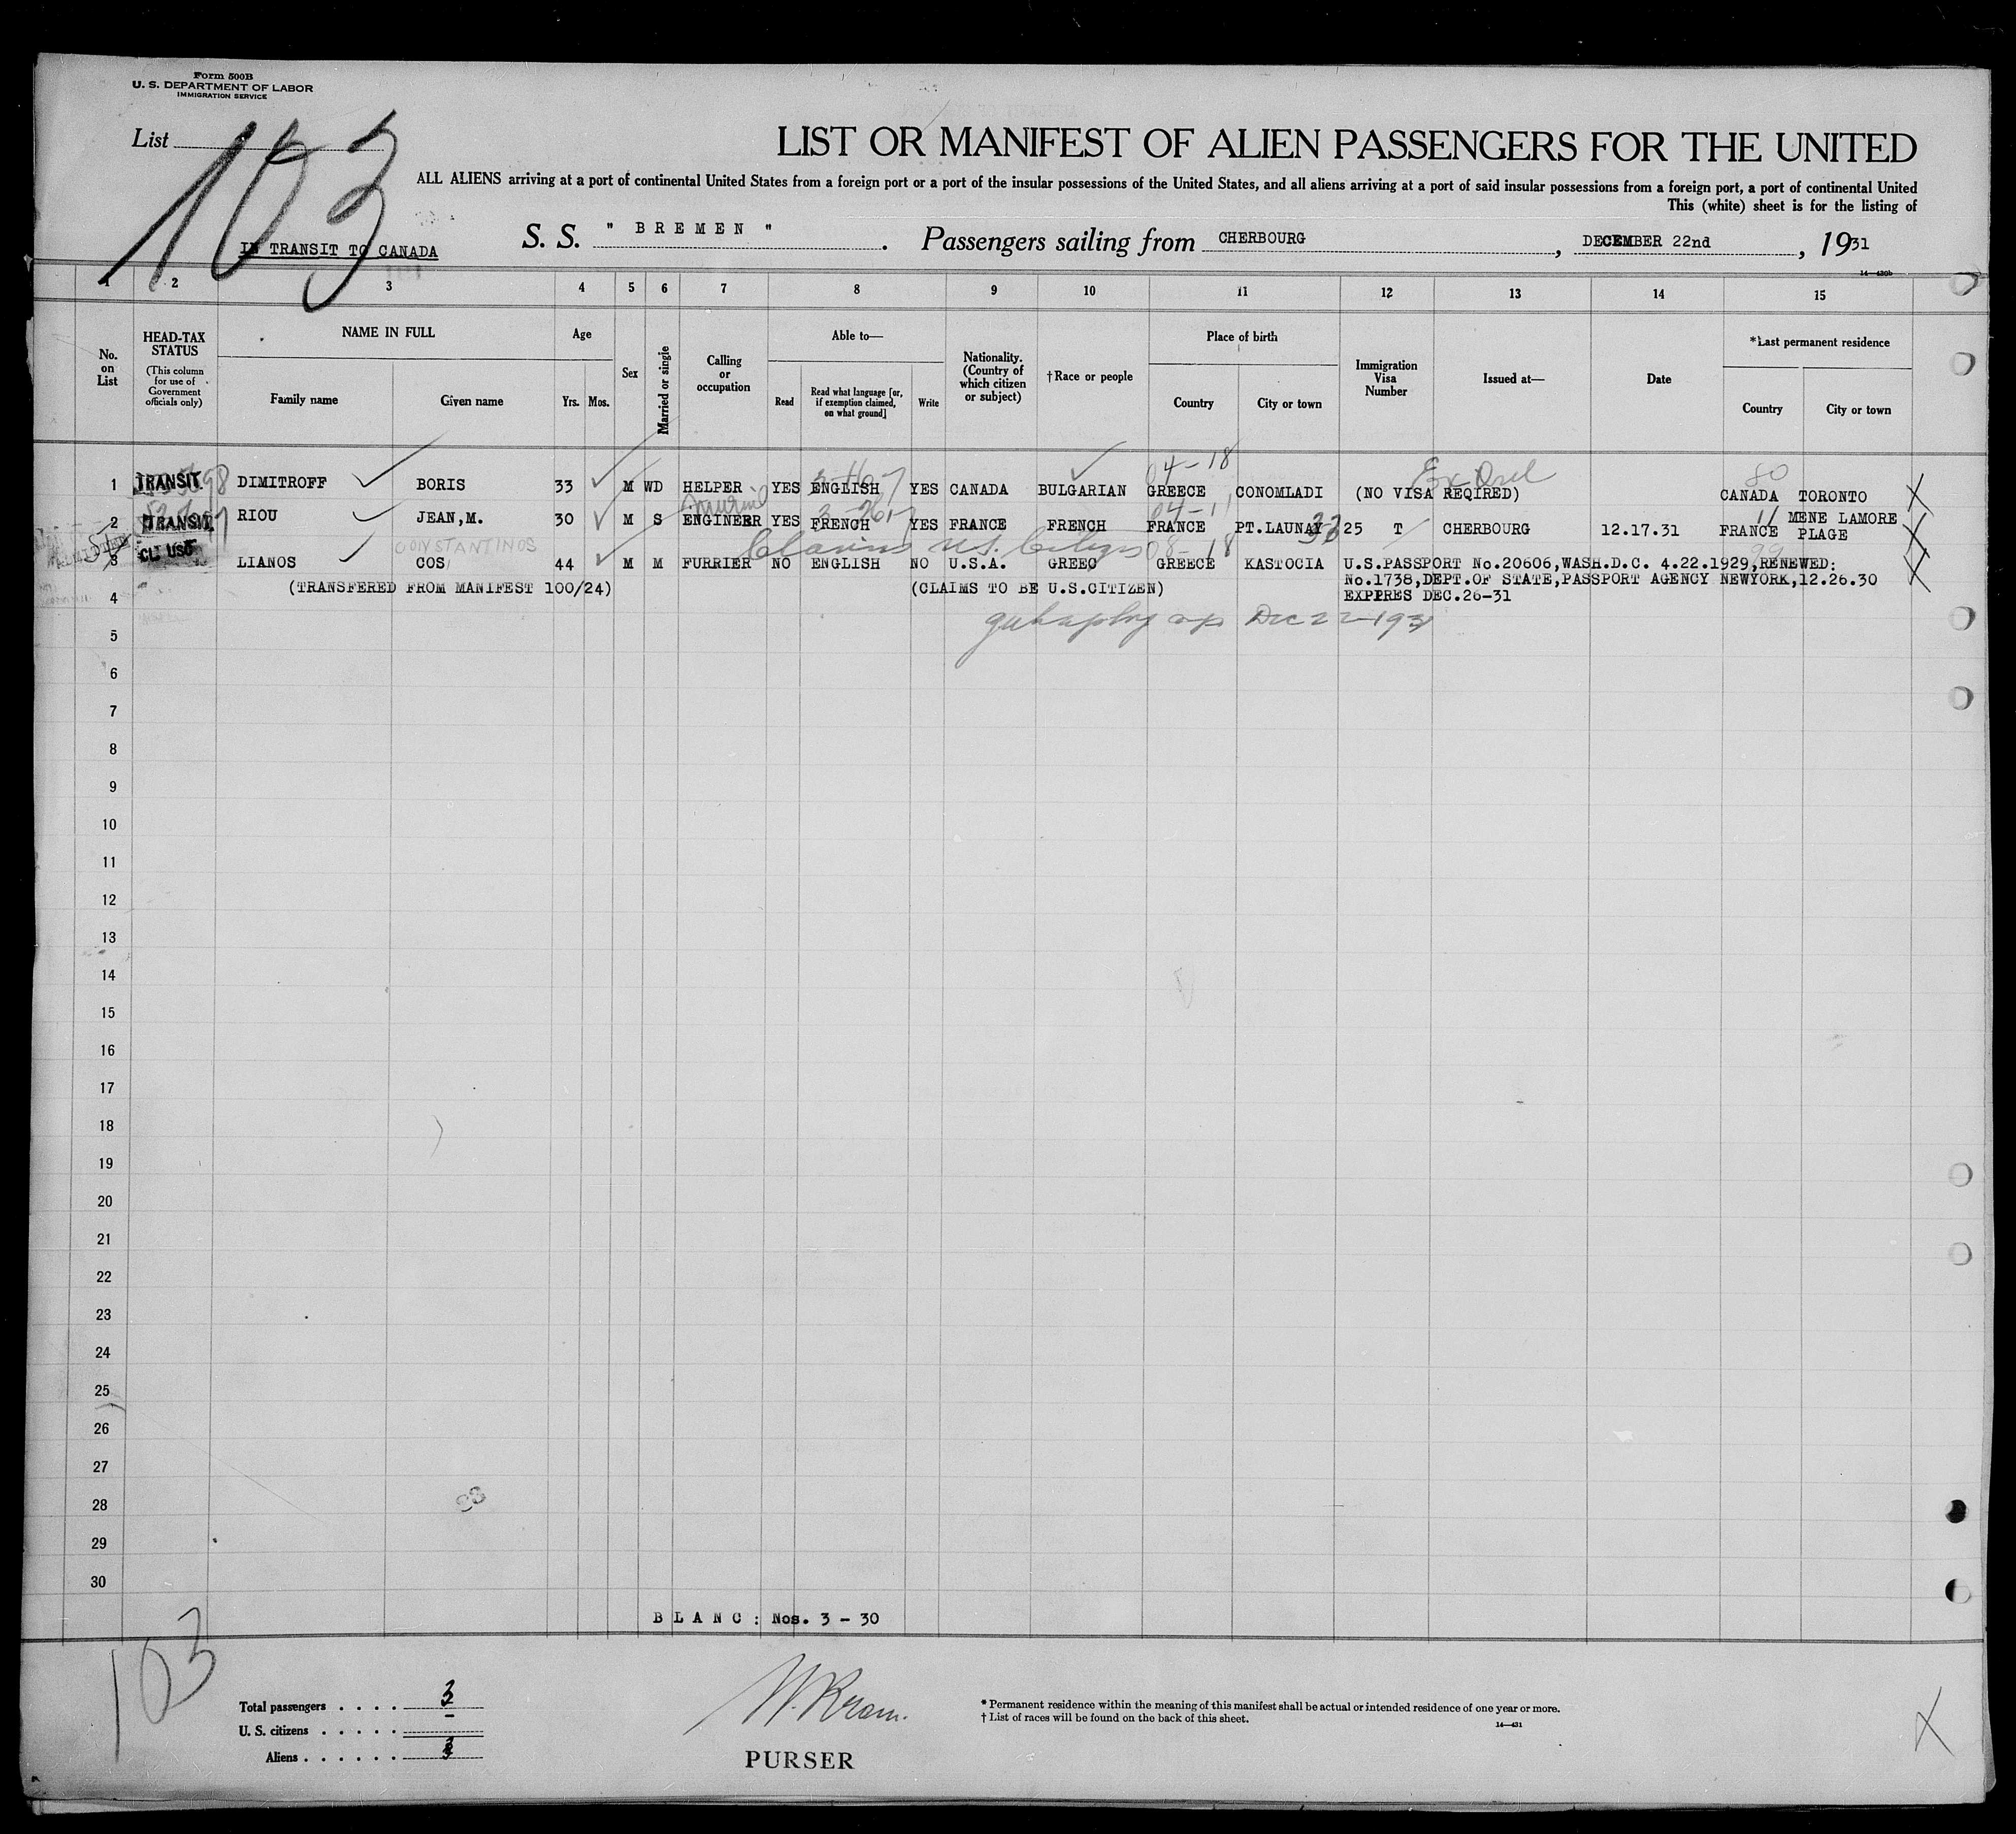 Form 500B
U. S. DEPARTMENT OF LABOR
IMMIGRATION SERVICE
List 103
LIST OR MANIFEST OF ALIEN PASSENGERS FOR THE UNITED
ALL ALIENS arriving at a port of continental United States from a foreign port or a port of the insular possessions of the United States, and all aliens arriving at a port of said insular possessions from a foreign port, a port of continental United
This (white) sheet is for the listing of
IN TRANSIT TO CANADA
S. S. " BREMEN " . Passengers sailing from CHERBOURG , DECEMBER 22nd , 1931
1 2 3 4 5 6 7 8 9 10 11 12 13 14 15
No. on List
HEAD-TAX STATUS (This column for use of Government officials only)
NAME IN FULL
Family name
Given name
Age
Yrs. Mos.
Sex
Married or single
Calling or occupation
Able to—
Read
Read what language [or, if exemption claimed, on what ground]
Write
Nationality. (Country of which citizen or subject)
†Race or people
Place of birth
Country
City or town
Immigration Visa Number
Issued at—
Date
*Last permanent residence
Country
City or town
04-18
80
1 TRANSIT. DIMITROFF BORIS 33 M WD HELPER YES ENGLISH YES CANADA BULGARIAN GREECE CONOMLADI (NO VISA REQIRED) CANADA TORONTO
04-11
11
2 TRANSIT. RIOU JEAN,M. 30 M S ENGINEER YES FRENCH YES FRANCE FRENCH FRANCE PT.LAUNAY 25 T CHERBOURG 12.17.31 FRANCE MENE LAMORE PLAGE
CONSTANTINOS
Claims U.S. Citizen 08-18
3 LIANOS COS 44 M M FURRIER NO ENGLISH NO U.S.A. GREEC GREECE KASTOCIA U.S.PASSPORT No.20606,WASH.D.C. 4.22.1929,RENEWED:
(TRANSFERED FROM MANIFEST 100/24) (CLAIMS TO BE U.S.CITIZEN) No.1738,DEPT.OF STATE,PASSPORT AGENCY NEWYORK,12.26.30
4 EXPPRES DEC.26-31
Dec 22 1931
5
6
7
8
9
10
11
12
13
14
15
16
17
18
19
20
21
22
23
24
25
26
27
28
29
30
BLANC: Nos. 3 - 30
103
Total passengers . . . . 3
U. S. citizens . . . . .
Aliens . . . . . .
W. Kram.
PURSER
* Permanent residence within the meaning of this manifest shall be actual or intended residence of one year or more.
† List of races will be found on the back of this sheet.
14—431